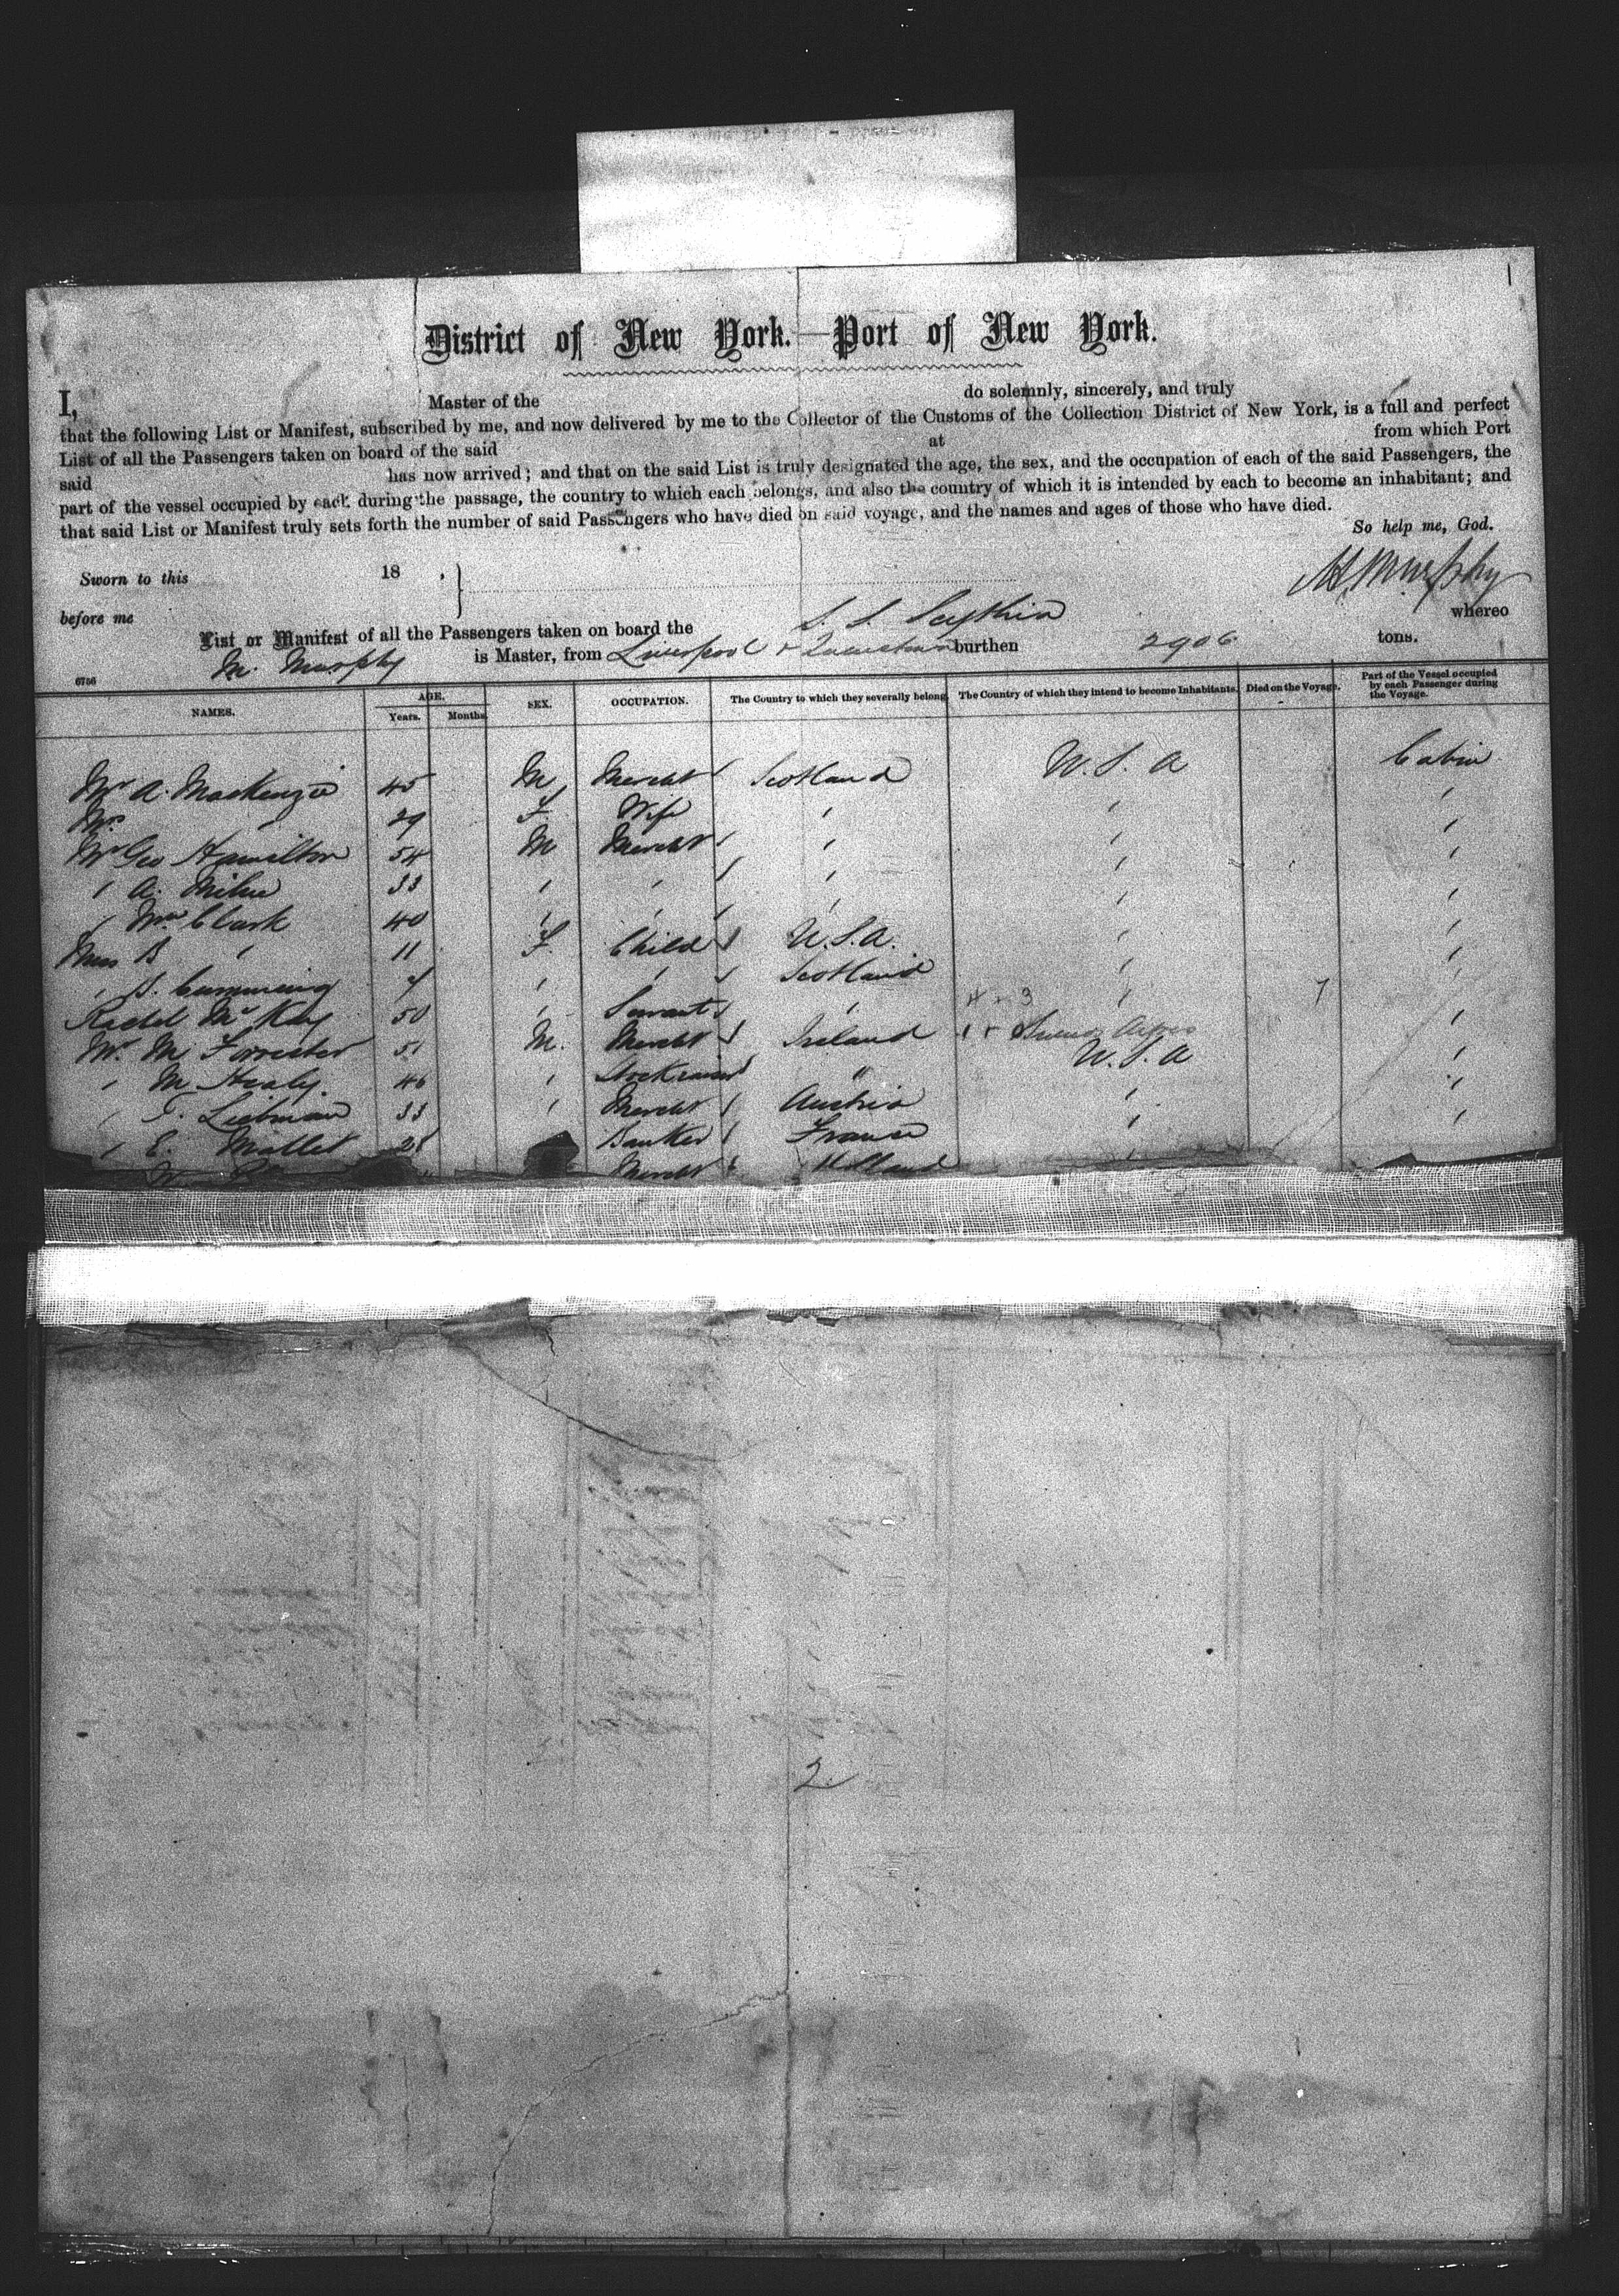 District of New York.—Port of New York.
I, Master of the do solemnly, sincerely, and truly
that the following List or Manifest, subscribed by me, and now delivered by me to the Collector of the Customs of the Collection District of New York, is a full and perfect
List of all the Passengers taken on board of the said at from which Port
said has now arrived; and that on the said List is truly designated the age, the sex, and the occupation of each of the said Passengers, the
part of the vessel occupied by each during the passage, the country to which each belongs, and also the country of which it is intended by each to become an inhabitant; and
that said List or Manifest truly sets forth the number of said Passengers who have died on said voyage, and the names and ages of those who have died.
So help me, God.
Sworn to this 18 M. Murphy
before me
List or Manifest of all the Passengers taken on board the S. S. Scythia whereo
M. Murphy is Master, from Liverpool & Queenstown burthen 2906 tons.
6756
NAMES. AGE. Years. Months. SEX. OCCUPATION. The Country to which they severally belong. The Country of which they intend to become Inhabitants. Died on the Voyage. Part of the Vessel occupied by each Passenger during the Voyage.
Mr A. MacKenzie 45 M Mercht Scotland U.S.A Cabin
Mrs " 29 F. Wife " " "
Mr Geo Hamilton 54 M Mercht " " "
" A. Milne 33 " " " " "
" Wm Clark 40 " " " " "
Miss B " 11 F. Child U.S.A. " "
" B. Cumming " " Scotland " "
Rachel McKay 50 " Servant " " "
Mr. M Forrester 51 M. Mercht Ireland Buenos Ayres "
" M. Healy 46 " Stockraiser " U.S.A "
" T. Liebman 33 " Mercht Austria " "
" E. Mallet 28 Banker France " "
Mercht Holland "
2.